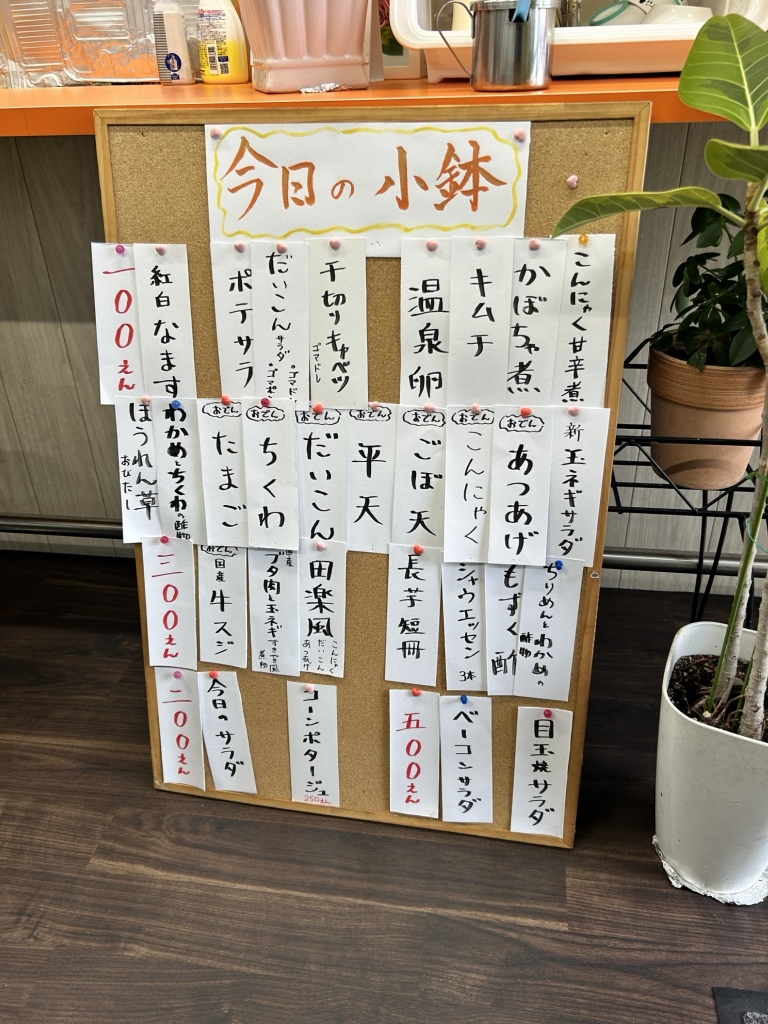 今日の小鉢
こんにゃく甘辛煮
かぼちゃ煮
キムチ
温泉卵
千切りキャベツ
ゴマドレ
だいこんサラダ
・ゴマドレ
・ゴマポン
ポテサラ
紅白なます
一〇〇えん
新玉ネギサラダ
おでん
あつあげ
おでん
こんにゃく
おでん
ごぼ天
おでん
平天
おでん
だいこん
おでん
ちくわ
おでん
たまご
わかめとちくわの酢物
ほうれん草
おひたし
ちりめんとわかめの
酢物
もずく酢
シャウエッセン
3本
長芋短冊
田楽風
こんにゃく
だいこん
あつあげ
国産
ブタ肉と玉ネギすきやき風
煮物
おでん
国産
牛スジ
三〇〇えん
目玉焼サラダ
ベーコンサラダ
五〇〇えん
コーンポタージュ
250えん
今日のサラダ
二〇〇えん